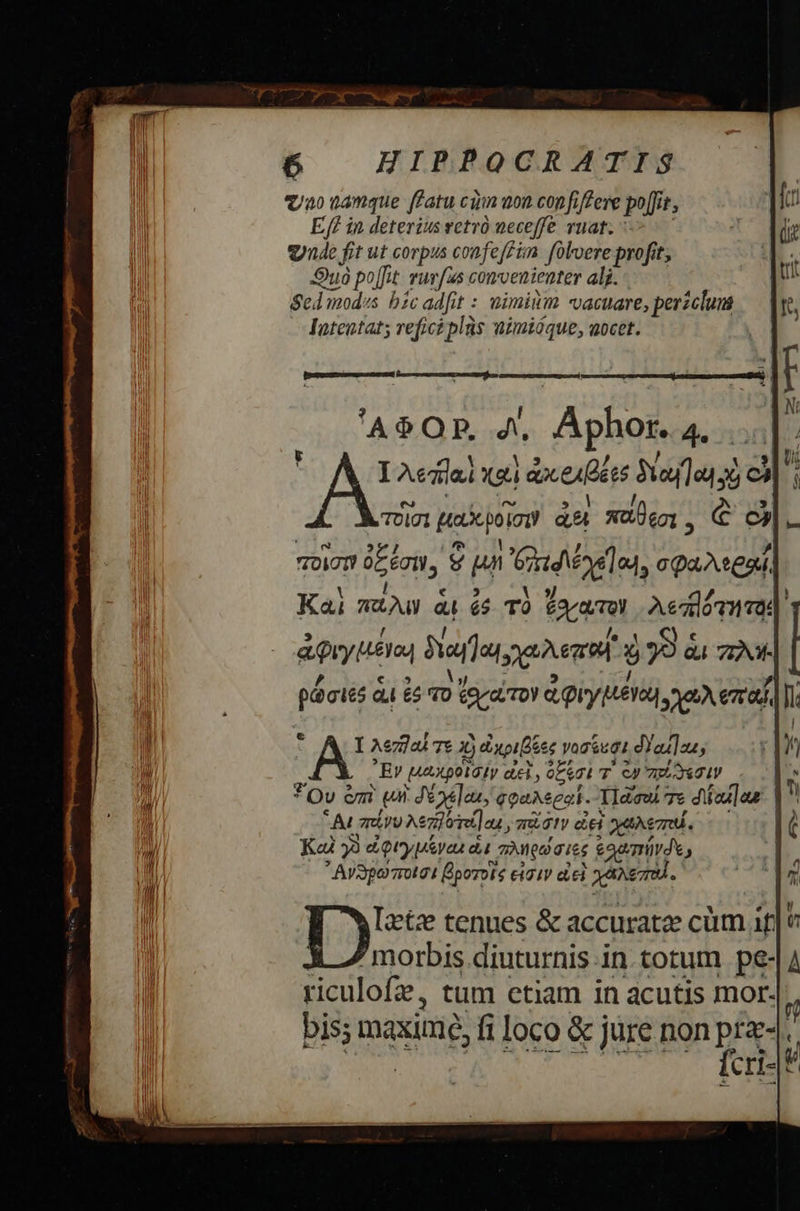 6 HIPPOCRATIS
Uno namque ſtatu cùm non conſiſtere poſſit,
Eſt in deterius retrò neceſſe ruat.
Unde fit ut corpus confeſtim ſolvere proſit,
Quò poſſit rurſus convenienter ali.
Sed modus hîc adſit : nimiùm vacuare, periclum
Intentat; refici plùs nimióque, nocet.
ἈΦΟΡ. δ'. Aphor. 4.
Αἱ λεπlαὶ καὶ ἀκριβέες δίαιται, ϗ ἐν
τοῖσι μακροῖσιν ἀεὶ πάθεσι, ϗ ἐν
τοῖσιν ὀξέσιν, ȣ̃ μὴ ἐπιδέχεται, σφαλεραί.
Καὶ πάλιν αἱ ἐς τὸ ἔσχατον λεπlότητος
ἀφιγμέναι δίαιται, χαλεπαί· ϗ γὸ αἱ πλη-
ρώσιες αἱ ἐς τὸ ἔσχατον ἀφιγμέναι, χαλεπαί.
Αἱ λεπlαί τε ϗ ἀκριβέες νοσέυσι δίαιται,
Ἐν μακροῖσιν ἀεὶ, ὀξέσι τ' ἐν πάθεσιν
Οὐ ἐπὶ μὴ δέχεται, σφαλεραί. Πᾶσαί τε δίαιται
Αἱ πάνυ λεπlόταται, πᾶσιν ἀεὶ χαλεπαί.
Καὶ γὸ ἀφιγμέναι αἱ πληρώσιες ἐσχατιήνδε,
Ἀνθρώποισι βροτοῖς εἰσιν ἀεὶ χαλεπαί.
Diætæ tenues & accuratæ cùm in
morbis diuturnis in totum pe-
riculoſæ, tum etiam in acutis mor-
bis; maximè, ſi loco & jure non præ-
ſcri-